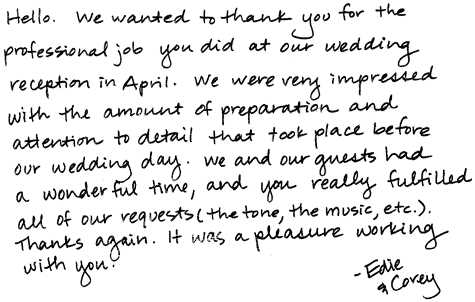 Hello. We wanted to thank you for the
professional job you did at our wedding
reception in April. We were very impressed
with the amount of preparation and
attention to detail that took place before
our wedding day. We and our guests had
a wonderful time, and you really fulfilled
all of our requests (the tone, the music, etc.).
Thanks again. It was a pleasure working
with you!
- Edie
& Corey